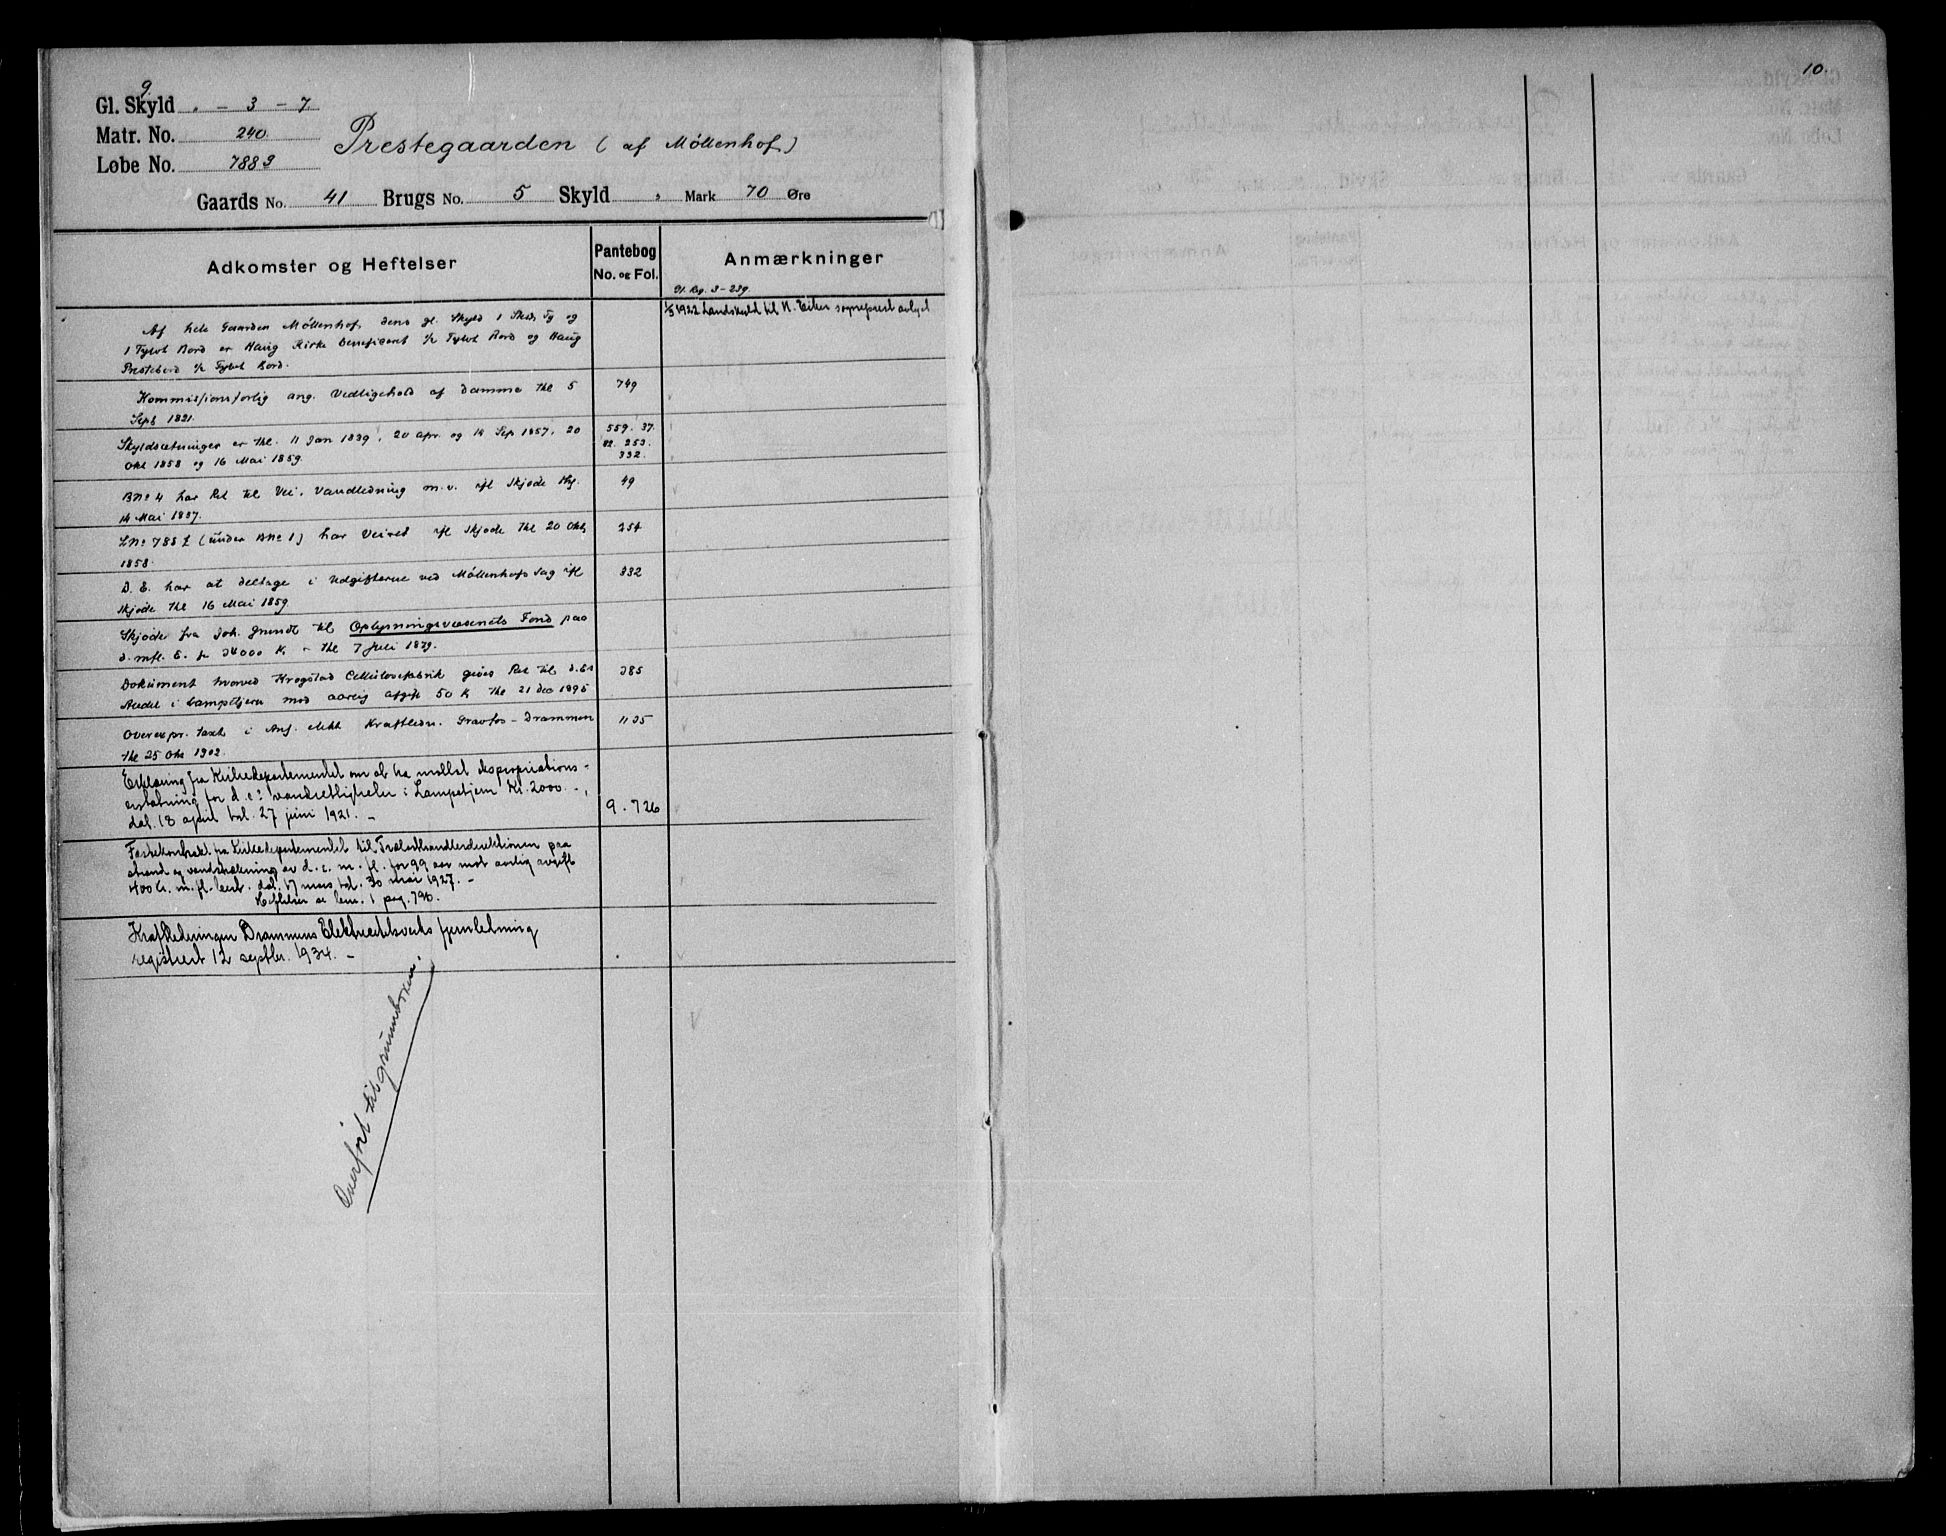 9.
Gl. Skyld „ - 3 - 7.
Matr. No. 240.
Prestegaarden (af Möllenhof)
Løbe No. 7883
Gaards No. 41 Brugs No. 5 Skyld „ Mark 70 Øre
Adkomster og Heftelser
Pantebog
No. og Fol.
Anmærkninger
Gl. Rg. 3-239
Af hele Gaarden Möllenhofs dens gl. Skyld 1 Skd, Tg og
1 Tylvt Bord er Haug Kirke beneficeret ½ Tylvt Bord og Haug
Prestebord ½ Tylvt Bord.
1/5 1922 Landskyld til N. Eiker sogneprest avlyst
Kommissionsforlig ang. Vedligehold af Damme thl 5
Sept 1821.
749
Skyldsætninger er thl. 11 Jan 1839, 20 apr. og 14 Sep 1857, 20
Okt 1858 og 16 Mai 1859.
559. 37.
82. 253.
332.
BNo 4 har Ret til Vei, Vandledning m.v. ifl Skjøde thl.
14 Mai 1857.
49
LNo 788 f (under BNo 1) har Veiret ifl Skjøde thl 20 Okt
1858.
254
D. E. har at deltage i Udgifterne ved Möllenhofs Sag ifl
Skjøde thl 16 Mai 1859
332
Skjøde fra Joh. Grundt til Oplysningsvæsenets Fond paa
d. mfl. E. for 34000 Kr - thl 7 Juli 1879.
Dokument hvorved Krogstad Cellulosefabrik gives Ret til d. Es
Andel i Lamptjern mod aarlig afgift 50 K thl 21 Dec 1895
385
Overexpr. taxt i Anl. elekt Kraftledn. Gravfos - Drammen
thl 25 Okt 1902.
1135
Erklæring fra Kirkedepartementet om at ha mottat ekspropriations-
erstatning for d.e.s vandrettigheter i Lampetjern Kr. 2000.-,
dat. 18 april tnl. 27 juni 1921. -
9. 726
Festekontrakt fra Kirkedepartementet til Trælasthandlerdirektionen paa
strand og vandstrækning av d.e. m. fl. for 99 aar mot aarlig avgift
400 kr. m. fl. best. dat. 17 mars tnl. 30 mai 1927. -
Heftelser se bem. 1 pag. 790.
Kraftledningen Drammens Elektricitetsverks fjernledning
registrert 12 septbr. 1934. -
Overført til grunnboken.
10.